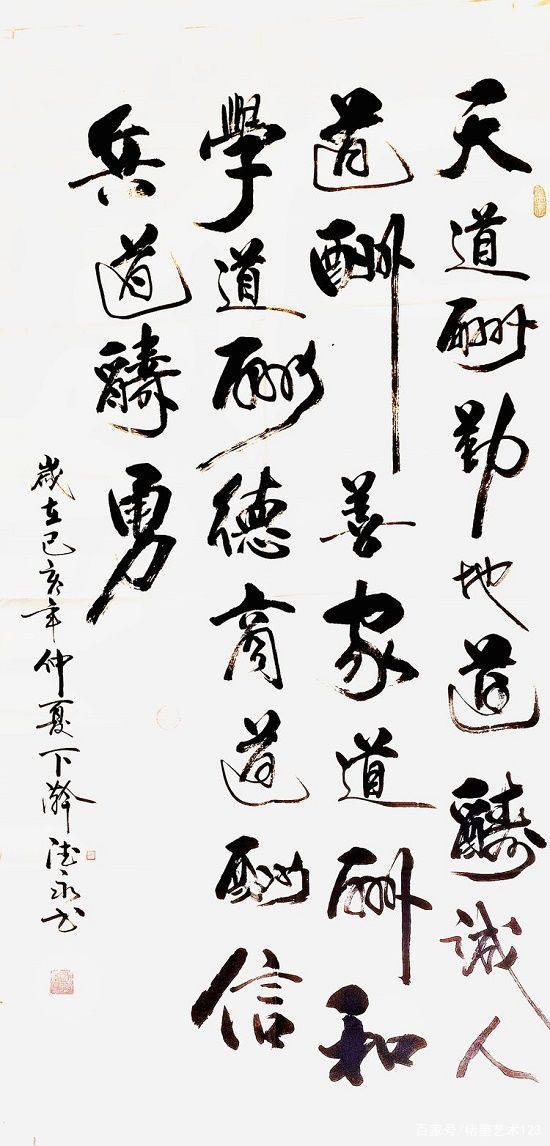 天道酬勤地道醻诚人
道酬善家道酬和
學道酬德商道酬信
兵道醻勇
歲在己亥年仲夏下澣永书
百家号/墨艺术123